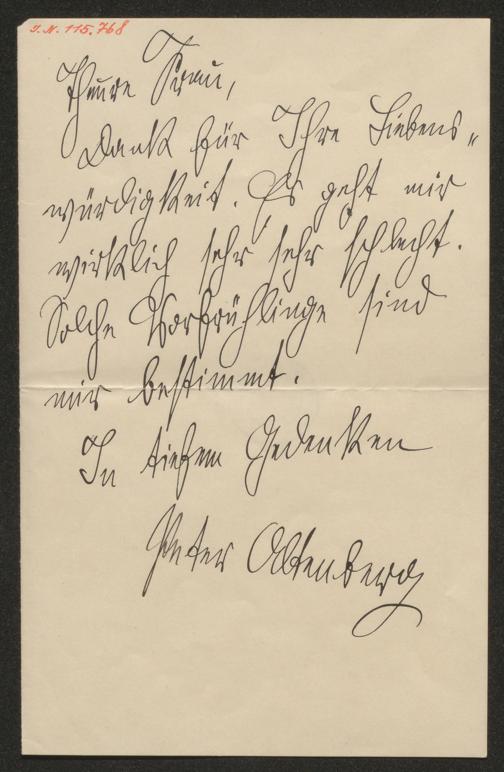 I.N. 115.768
Theure Frau,
Dank für Ihre Liebens„
würdigkeit. Es geht mir
wirklich sehr sehr schlecht.
Solche Vorfrühlinge sind
mir bestimmt.
In tiefem Gedenken
Peter Altenberg